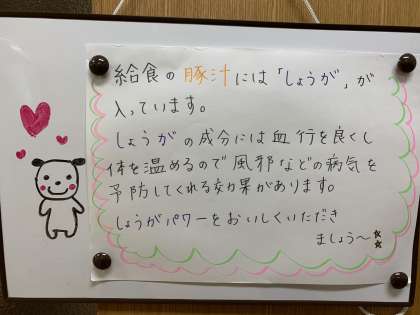 給食の豚汁には「しょうが」が
入っています。
しょうがの成分には血行を良くし
体を温めるので風邪などの病気を
予防してくれる効果があります。
しょうがパワーをおいしくいただき
ましょう〜